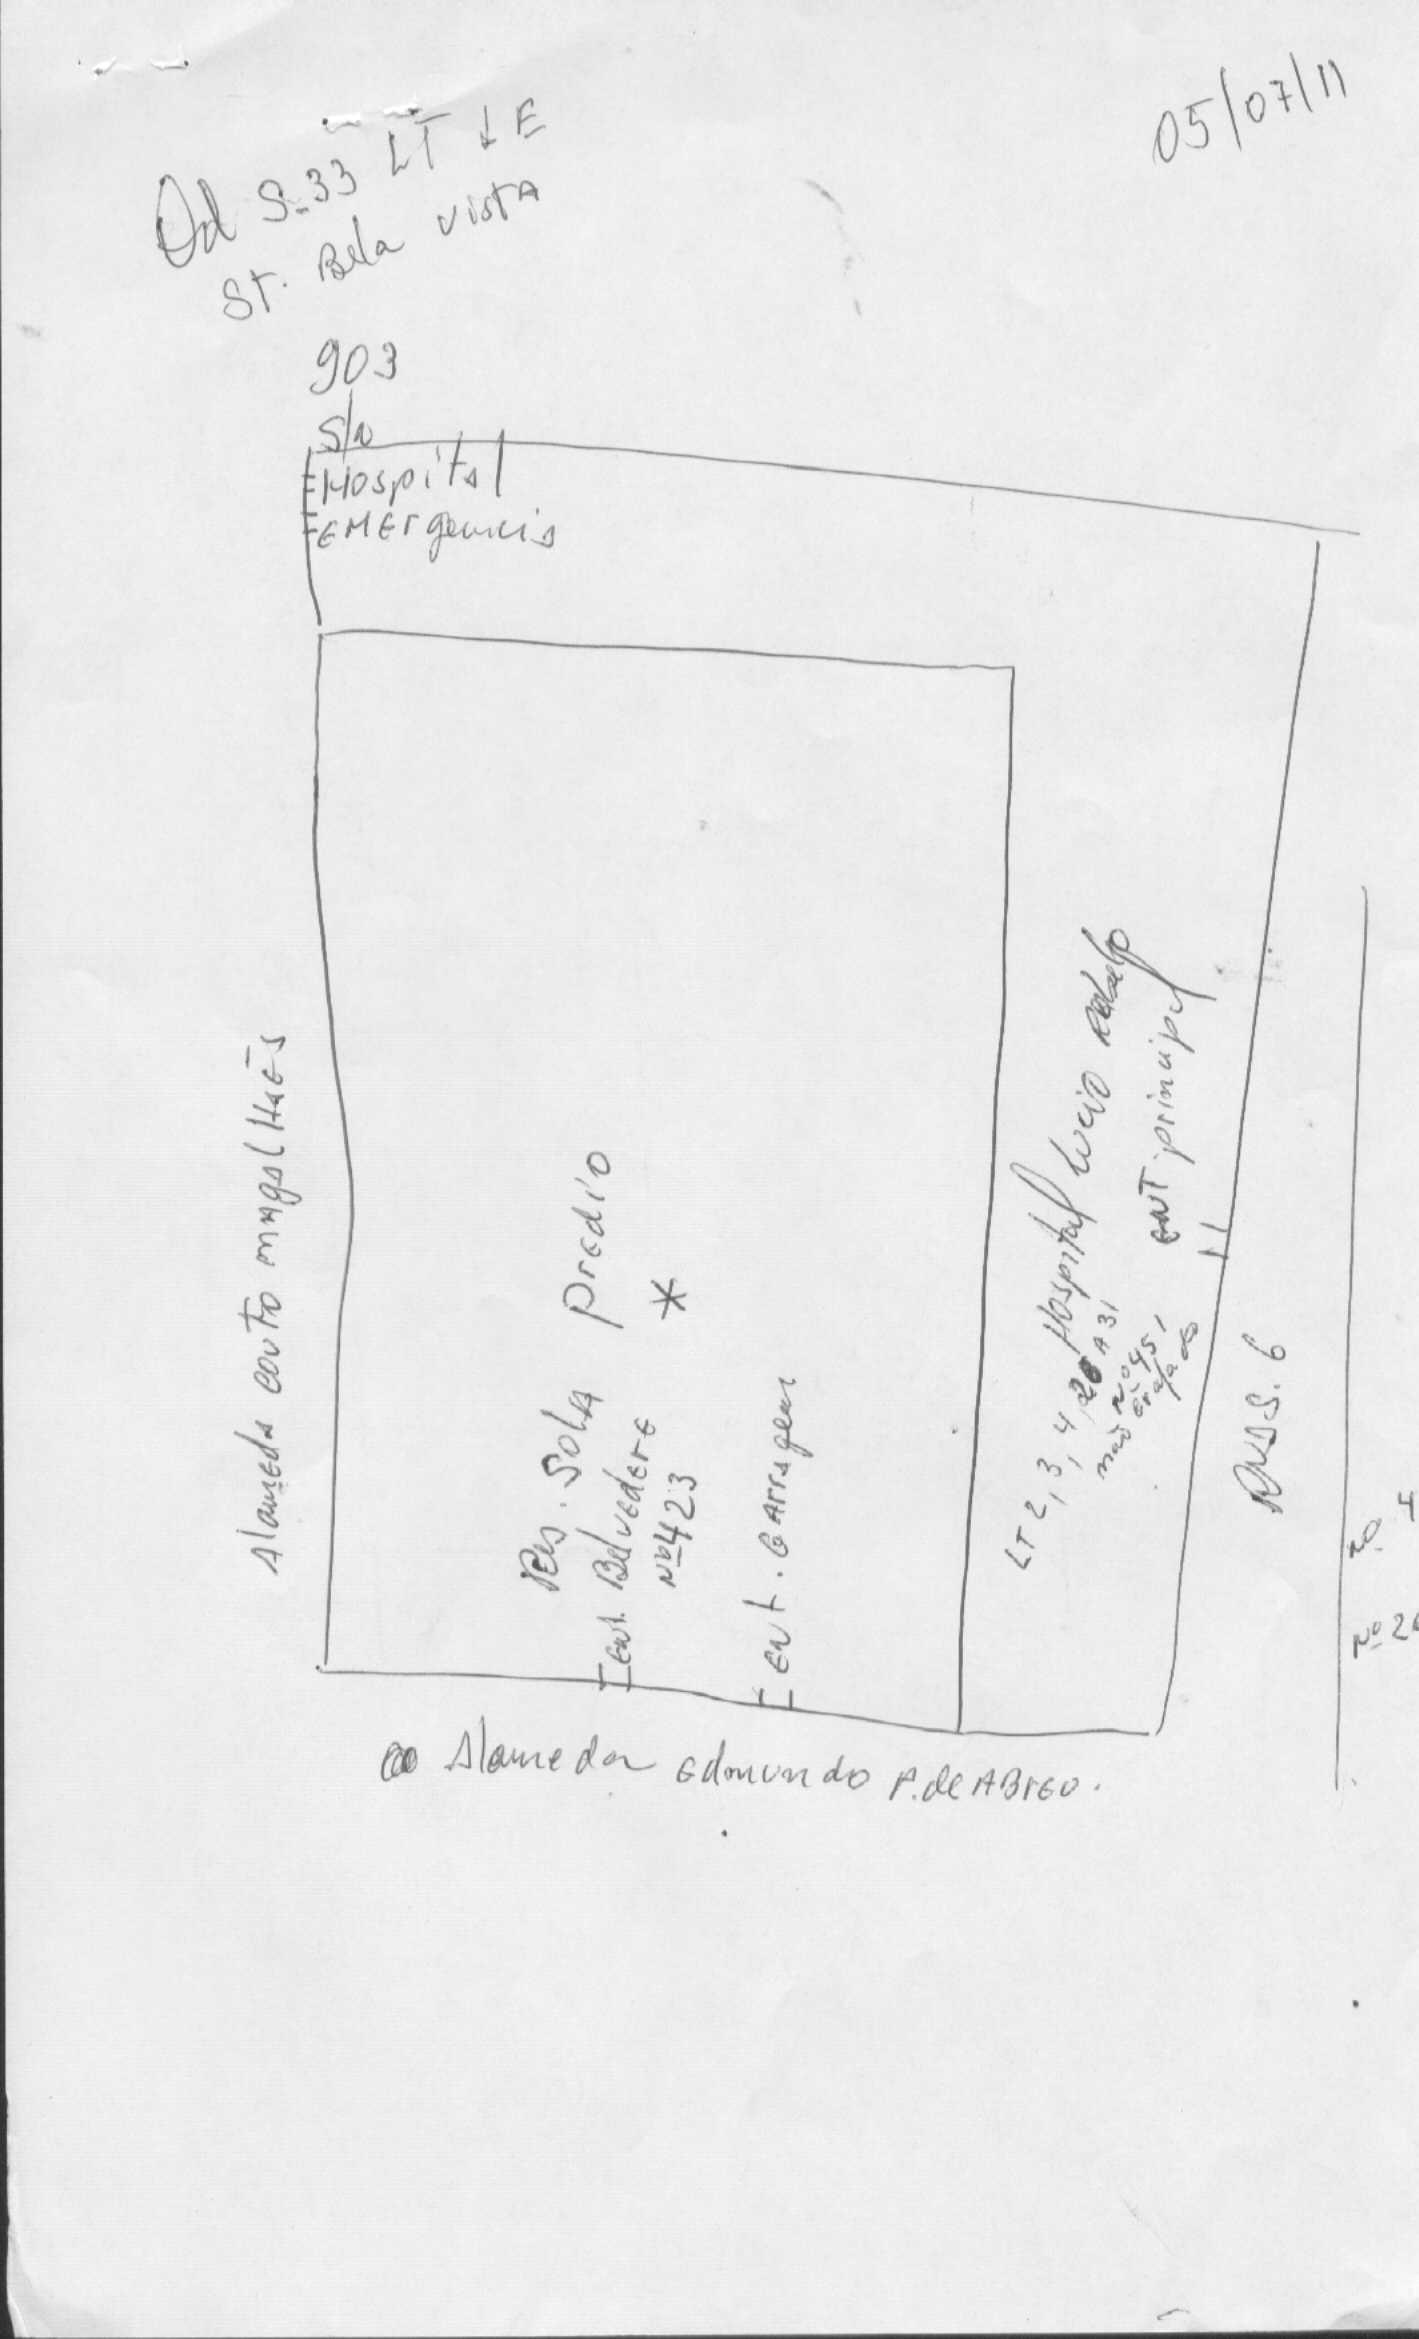 05/07/11
Qd S-33 LT 1 E
St. Bela Vista
903
S/N
Hospital
EMErgencia
Alameda couto magalHaēs
Res. SolA prEdio
Ent. BelvEdErE *
Nº 423
Ent. GArragem
Hospital Lucio
ENT principal
LT 2, 3, 4, 28 A 31
Nº 451
não
RUA S. 6
Nº
Nº 20
Alameda Edmundo P. de ABrEU.